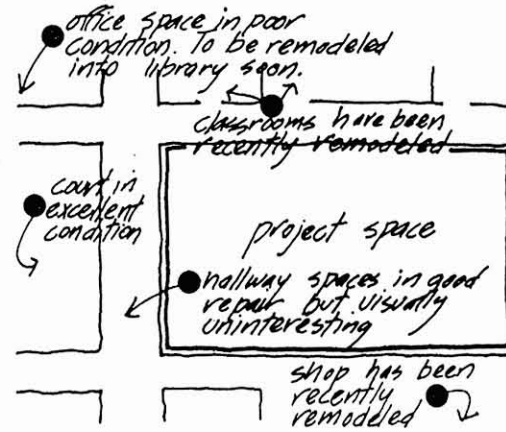 office space in poor
condition. To be remodeled
into library soon.
classrooms have been
recently remodeled
court in
excellent
condition
project space
hallway spaces in good
repair but visually
uninteresting
shop has been
recently
remodeled